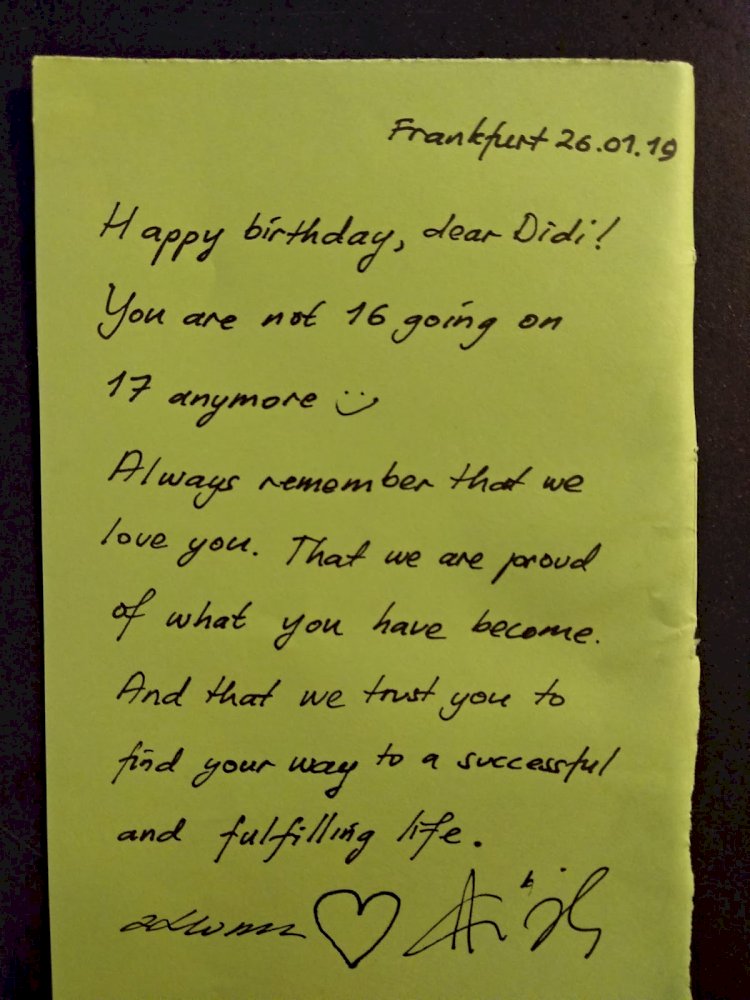 Frankfurt 26.01.19
Happy birthday, dear Didi!
You are not 16 going on
17 anymore :)
Always remember that we
love you. That we are proud
of what you have become.
And that we trust you to
find your way to a successful
and fulfilling life.